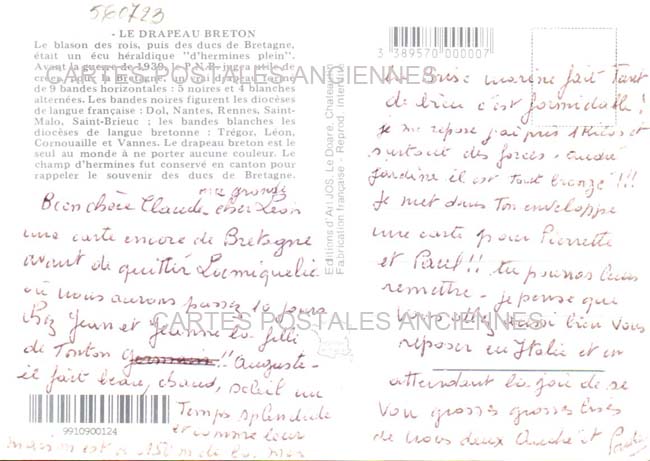 560723
- LE DRAPEAU BRETON
Le blason des rois, puis des ducs de Bretagne,
était un écu héraldique "d'hermines plein".
Avant la guerre de 1939, le P.N.B. jugea utile de
créer pour la Bretagne, un vrai drapeau formé
de 9 bandes horizontales : 5 noires et 4 blanches
alternées. Les bandes noires figurent les diocèses
de langue française : Dol, Nantes, Rennes, Saint-
Malo, Saint-Brieuc ; les bandes blanches les
diocèses de langue bretonne : Trégor, Léon,
Cornouaille et Vannes. Le drapeau breton est le
seul au monde à ne porter aucune couleur. Le
champ d'hermines fut conservé en canton pour
rappeler le souvenir des ducs de Bretagne.
CARTES POSTALES ANCIENNES
ma grande
Bien chère Claude - cher Léon
une carte encore de Bretagne
avant de quitter Locmiquelic
où nous aurons passez 10 jours
chez Jean et Jeanne la fille
de Tonton Germain!! Auguste -
il fait beau, chaud, soleil un
Temps splendide
et comme leur
maison est à 150 m de la mer
9910900124
Editions d'Art JOS, Le Doaré, Chateaulin
Fabrication française - Reprod. interdite
3 389570 000007
la brise marine fait Tant
de bien c'est formidable!
je me repose j'ai pris 1 Kilos et
surtout des forces - André
jardine il est Tout bronzé!!!
Je met dans Ton enveloppe
une carte pour Pierrette
et Paul!! tu pourras leurs
remettre - je pense que
vous allez aussi bien vous
CARTES POSTALES ANCIENNES
reposer en Italie et en
attendant la joie de se
voir grosses grosses bises
de nous deux André et